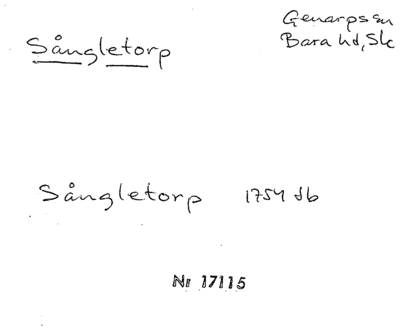 Genarps sn
Sångletorp
Bara hd, Sk
Sångletorp 1754 db
Nr 17115